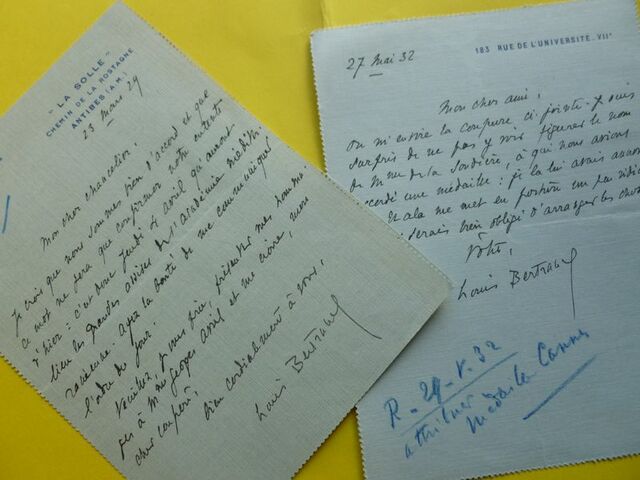 "LA SOLLE"
CHEMIN DE LA ROSTAGNE
ANTIBES (A.M.)
23 mars 29
Mon cher chancelier,
Je crois que nous sommes bien d'accord et que
ce mot ne fera que confirmer notre entente
d'hier : c'est donc jeudi 4 avril qu'auront
lieu les grandes assises de l'Académie méditer-
ranéenne. Ayez la bonté de me communiquer
l'ordre du jour.
Veuillez, je vous prie, présenter mes homma-
ges à Mme Georges avril et me croire, mon
cher confrère,
bien cordialement à vous,
Louis Bertrand
183 RUE DE L'UNIVERSITÉ. VIIe
27 mai 32
Mon cher ami,
On m'envoie la coupure ci-jointe. Je suis
surpris de ne pas y voir figurer le nom
de Mme de la Soudière, à qui nous avions
accordé une médaille : je la lui avais
et cela me met en posture un peu
serais bien obligé d'arranger les
Votre,
Louis Bertrand
R. 29.5.32
attribuer
médaille Cannes